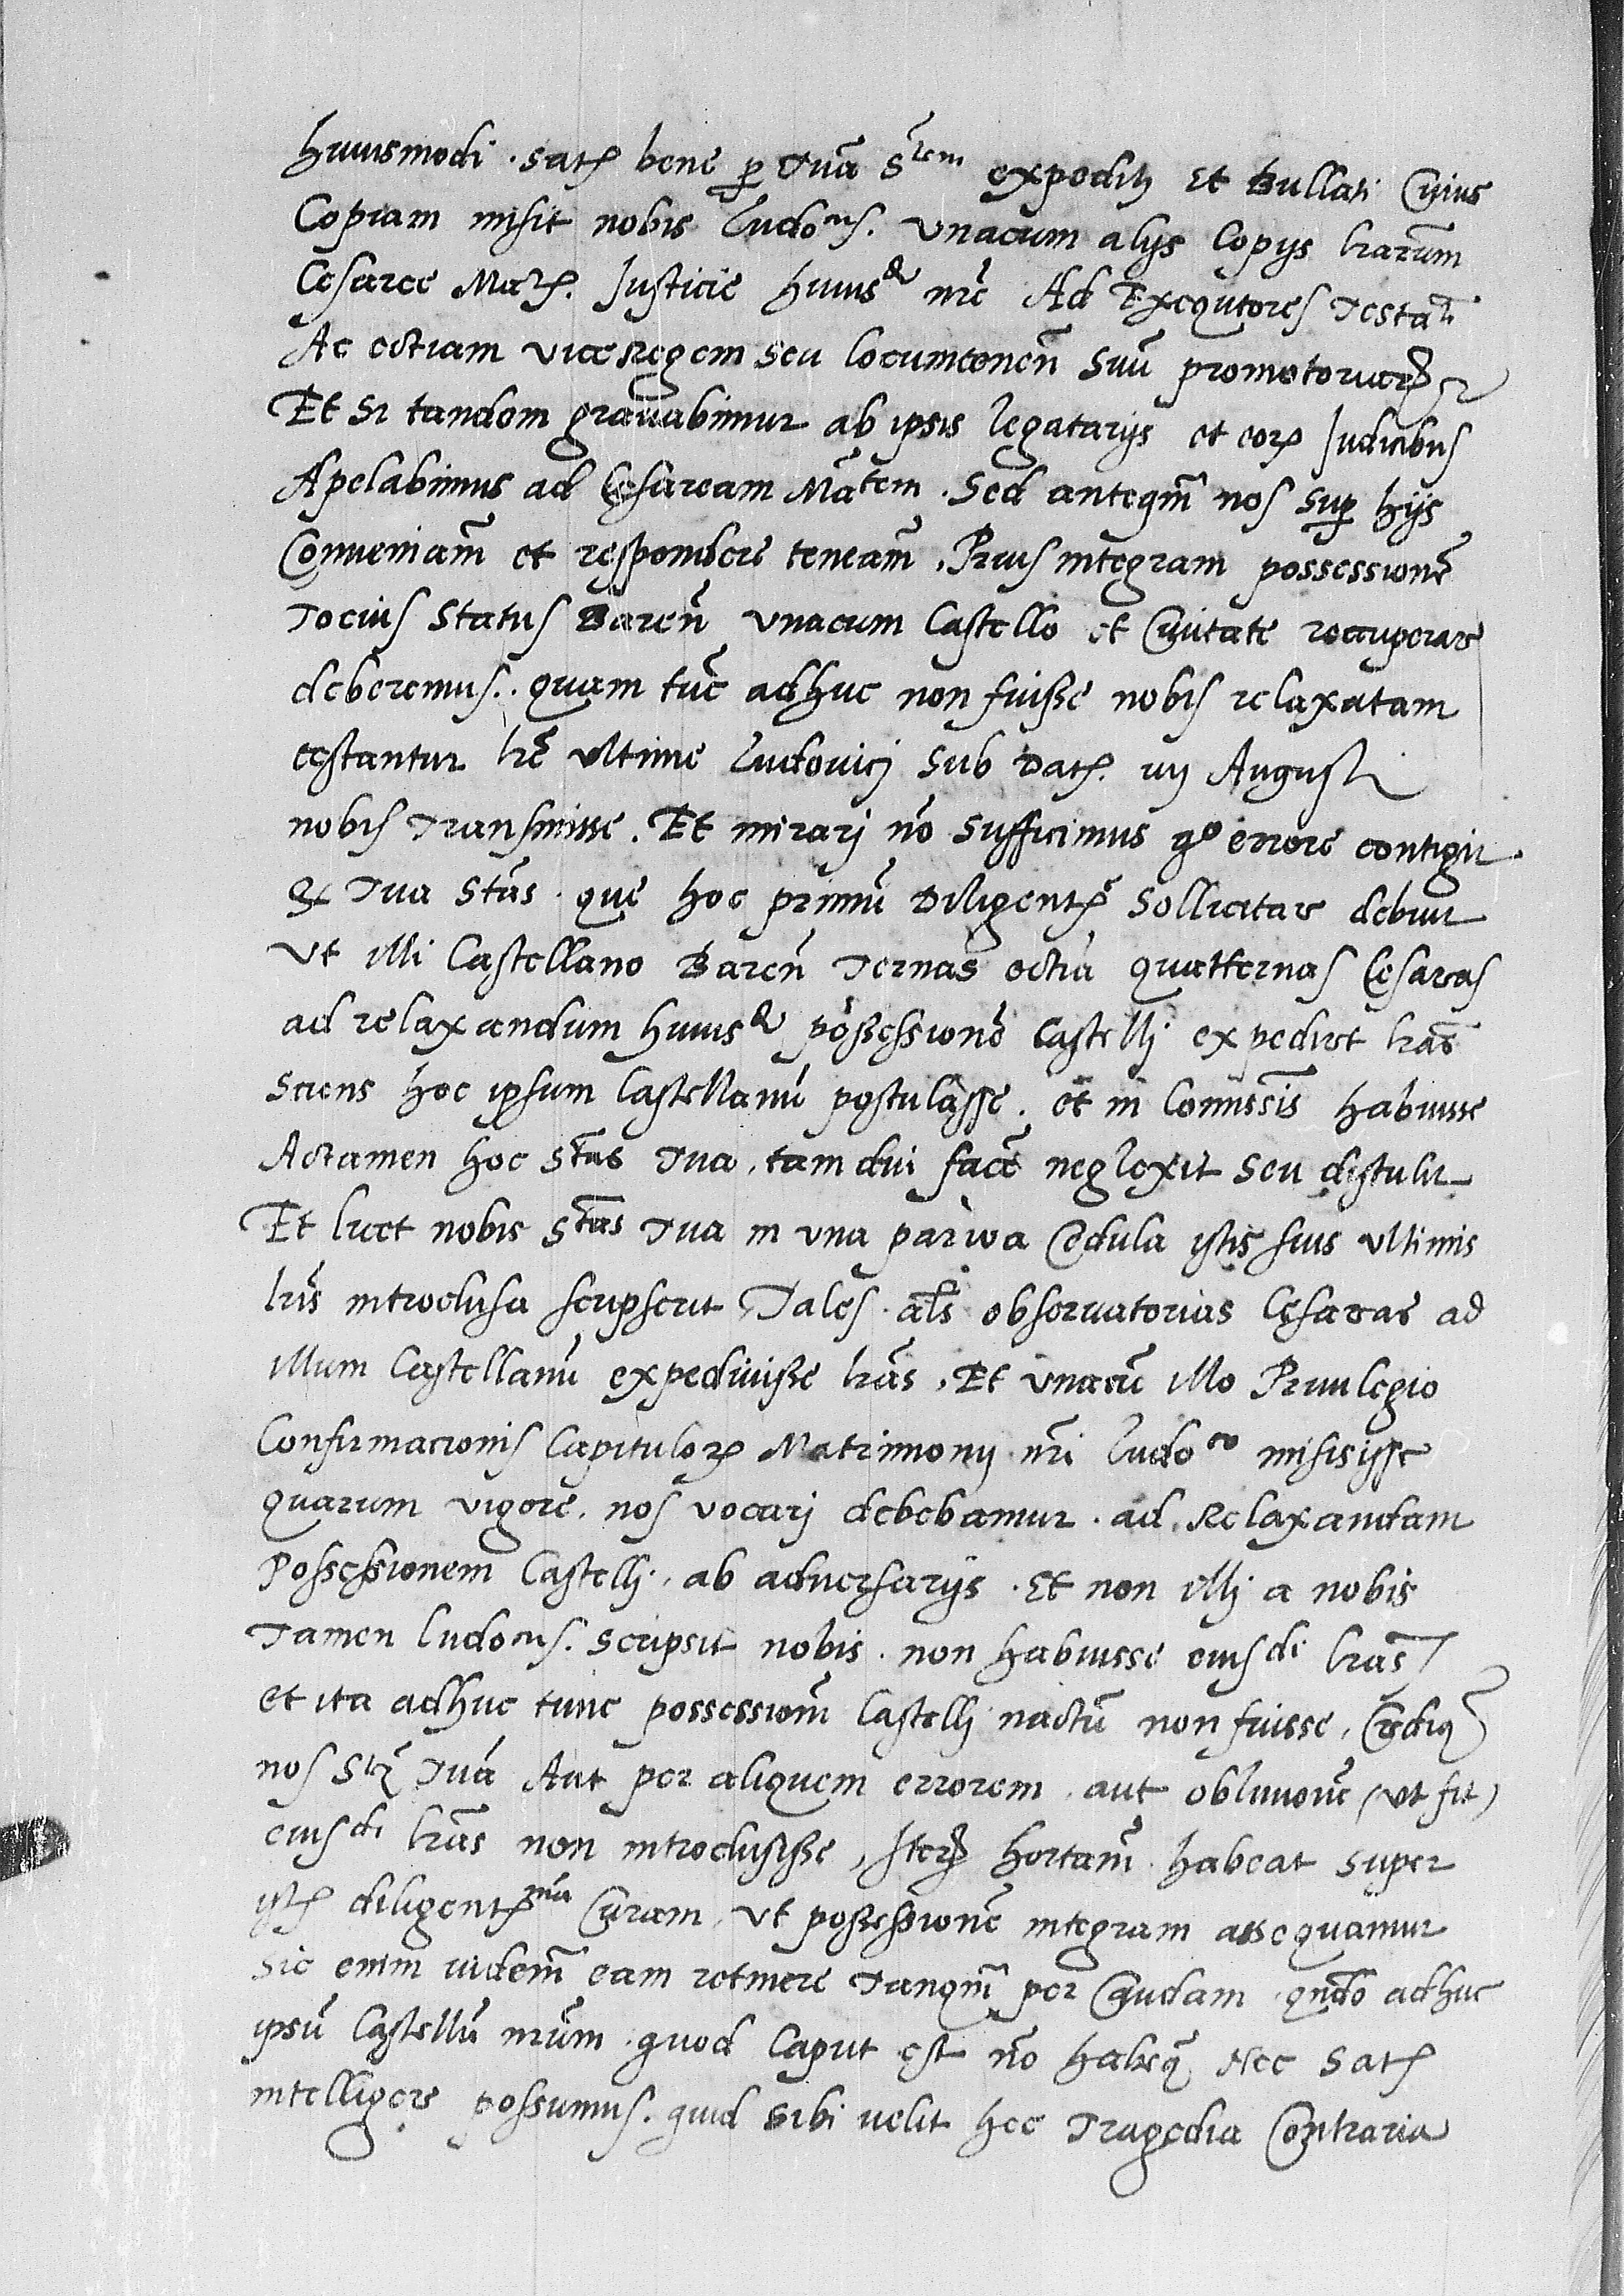 huiusmodi . satꝫ bene ꝑ Tuā S^rem expeditꝫ et Bullati Cuius
Copiam misit nobis Ludo^cus. vnacum alys Copys lrarum
Cesaree Matꝫ. Justicie huius^di nrē Ad Exequtores Testam̄
Ac ectiam viceRegem seu locumtenen̄ Suū promotoriarꝫ
Et Si tandem grauabimur ab ipsis legatarijs et eorꝫ Judicibus
Apelabimus ad Cesaream Mātem . Sed anteqm̄ nos Suꝑ hijs
Conueniam̄ et respondere teneam̄ . Prius integram possessionē
Tocius Status Baren̄ vnacum Castello et Ciuitate recuperare
deberemus. quam tūc adhuc non fuisse nobis relaxatam
testantur lrē vltime Ludouicj Sub Datꝫ. iij Augusti
nobis Transmisse. Et mirarj nō Sufficimus qº errore contigit.
ꝙ Tua Stās . que hoc primū Diligentꝫ Sollicitare debuit
vt illi Castellano Baren̄ Ternas ectiā quatternas Cesareas
ad relaxandum huius^di possessionē Castellj expediret lrās
Sciens hoc ipsum Castellanū postulasse . et in Comissis habuisse
Actamen hoc Stās Tua . tam diu facē neglexit Seu distulit
Et licet nobis Stās Tua in vna parwa Cedula istis suis vltimis
lrīs introclusa scripserit Tales . als obseruatorias Cesareas ad
illum Castellanū expediuisse lrās . Et vnacū illo Priuilegio
Confirmacionis Capitulorꝫ Matrimonij nri Ludo^co misisse
quarum vigore . nos vocarj debebamur . ad Relaxandam
Possessionem Castellj . ab aduersarijs . Et non illj a nobis
Tamen Ludo^cus. Scripsit nobis . non habuisse eius^di lrās
et ita adhuc tunc possessionē Castellj nactū non fuisse . Credimꝫ
nos Stꝫ Tuā Aut per aliquem errorem . aut obliuionē (vt fit)
eius^di lrās non introclusisse , Iterꝫ hortam̄ . habeat super
istꝫ diligentꝫ^mā Curam . vt possessionē integram assequamur
Sic enim videm̄ eam retinere Tanqm̄ per Caudam . qn̄do adhuc
ipsū Castellū nrūm . quod Caput est nō habemꝫ Nec Satꝫ
intelligere possumus . quid Sibi uelit hec Tragedia Contraria